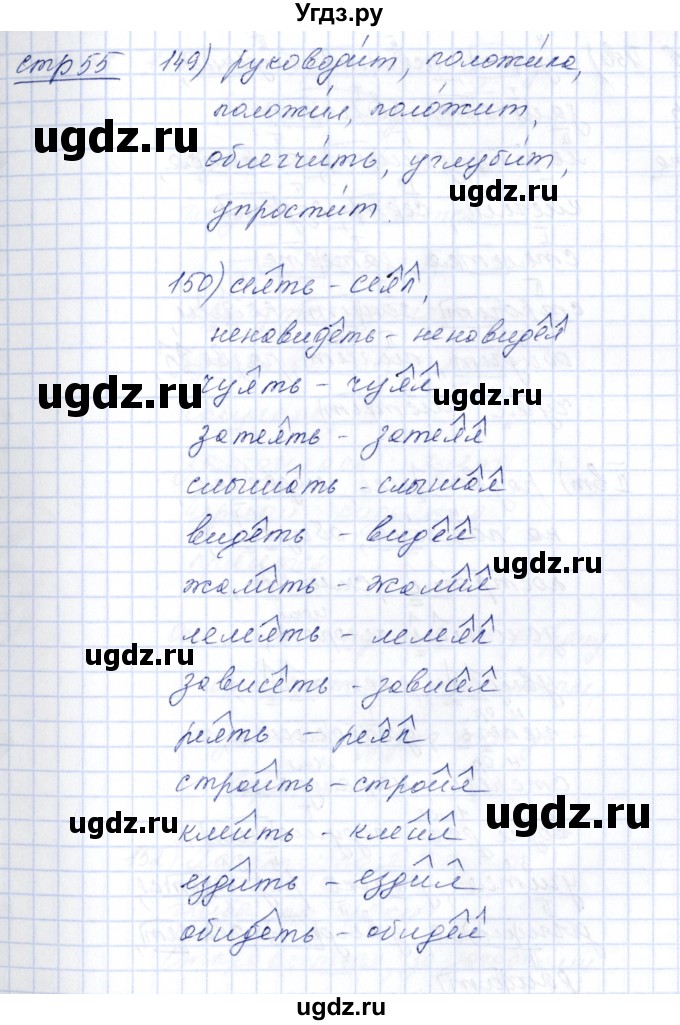 Угдз.ру
стр 55 149) руководи́т, положи́ла,
положи́л, поло́жит,
облегчи́ть, углуби́т,
упрости́т.
150) сеять – сеял,
ненавидеть – ненавидел
чуять – чуял
затеять – затеял
слышать – слышал
видеть – видел
жалить – жалил
лелеять – лелеял
зависеть – зависел
реять – реял
строить – строил
клеить – клеил
ездить – ездил
обидеть – обидел
ugdz.ru
ugdz.ru
ugdz.ru
ugdz.ru
ugdz.ru
ugdz.ru
ugdz.ru
ugdz.ru
ugdz.ru